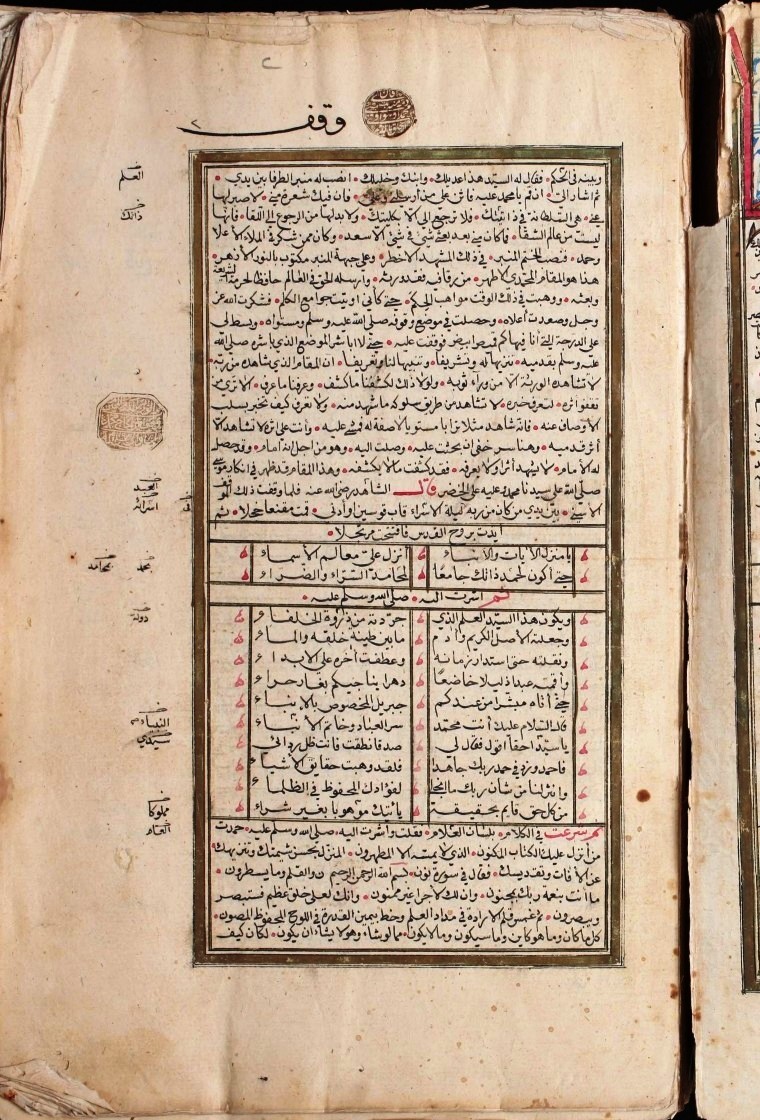 وقف
وبينه في الحكم فقال له السيد هذا عديلك وابنك وخليلك انصب له منبر الطرفا بين يدي
ثم اشار الي ان قم يا محمد عليه فاثن على من ارسلني وعلي فان فيك شعرة مني لا صبر لها
عني هي السلطانة في ذاتيتك فلا ترجع الي الا بكليتك ولا بد لها من الرجوع الى اللقاء فانها
ليست من عالم الشقاء فما كان مني بعد بعثي شيء في شيء الا سعد وكان ممن شكر في الملاء الاعلا
وحمد فنصب الختم المنبر في ذلك المشهد الاخطر وعلى جبهة المنبر مكتوب بالنور الازهر
هذا هو المقام المحمدي الاطهر من رقا فيه فقد ورثه وارسله الحق في العالم حافظا لحرمة الشريعة
وبعثه ووهبت في ذلك الوقت مواهب الحكم حتى كأني اوتيت جوامع الكلم فشكرت الله عز
وجل وصعدت اعلاه وحصلت في موضع وقوفه صلى الله عليه وسلم ومستواه وبسط لي
على الدرجة التي انا فيها كم قميص ابيض فوقفت عليه حتى لا اباشر الموضع الذي باشره صلى الله
عليه وسلم بقدميه تنزيها له وتشريفا وتنبيها لنا وتعريفا ان المقام الذي شاهده من ربه
لا تشاهده الورثة الا من وراء ثوبه ولولا ذلك لكشفنا ما كشف وعرفنا ما عرف الا ترى من
تقفو اثره لتعرف خبره لا تشاهد من طريق سلوكه ما شهد منه ولا تعرف كيف تخبر بسلب
الاوصاف عنه فانه شاهد مثلا ترابا مستويا لا صفة له فمشى عليه وانت على اثره لا تشاهد الا
اثر قدميه وهنا سر خفي ان بحثت عليه وصلت اليه وهو من اجل انه امام وقد حصل
له الامام لا يشهد اثرا ولا يعرفه فقد كشفت ما لا يكشفه وهذا المقام قد ظهر في انكار موسى
صلى الله على سيدنا محمد وعليه على الخضر قال الشاهد رضي الله عنه فلما وقفت ذلك الموقف
الاسنى بين يدي من كان من ربه ليلة الاسراء قاب قوسين او ادنى قمت مقنعا خجلا ثم
ايدت بروح القدس فافتتحت مرتجلا
يا منزل الآيات والانباء انزل علي معالم الاسماء
حتى اكون لحمد ذاتك جامعا لمحامد السراء والضراء
ثم اشرت اليه صلى الله وسلم عليه
ويكون هذا السيد العلم الذي جردته من ذروة الخلفاء
وجعلته الاصل الكريم وآدم ما بين طينة خلقه والماء
ونقلته حتى استدار زمانه وعطفت آخره على الابداء
واقمته عبدا ذليلا خاضعا دهرا يناجيكم بغار حراء
حتى أتاه مبشرا من عندكم جبريل المخصوص بالانباء
قال السلام عليك أنت محمد سر العباد وخاتم الأنباء
يا سيدي احقا اقول فقال لي صدقا نطقت فانت ظل ردائي
فاحمد وزد في حمد ربك جاهدا فلقد وهبت حقايق الاشياء
وانثر لنا من شان ربك ما انجلا لفؤادك المحفوظ في الظلماء
من كل حق قايم بحقيقة يأتيك موهوبا بغير شراء
ثم شرعت في الكلام بلسان العلام فقلت واشرت اليه صلى الله وسلم عليه حمدت
من أنزل عليك الكتاب المكنون الذي لا يمسه الا المطهرون المنزل بحسن شيمتك وتنزيهك
عن الآفات وتقديسك فقال في سورة نون بسم الله الرحمن الرحيم ن والقلم وما يسطرون
ما انت بنعمة ربك بمجنون وان لك لأجرا غير ممنون وانك لعلى خلق عظيم فستبصر
ويبصرون ثم غمس قلم الارادة في مداد العلم وخط بيمين القدرة في اللوح المحفوظ المصون
كل ما كان وما هو كاين وما سيكون وما لا يكون مما لو شاء وهو لا يشاء ان يكون لكان كيف
العلم
ذاتك
الحميد
اسرائه
محمد
محامد
دوله
سيدي
مملوكا